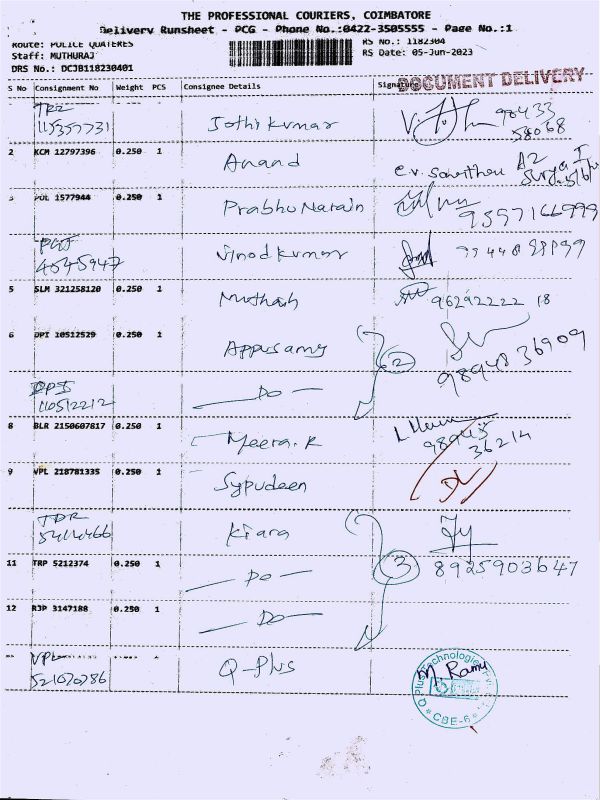 THE PROFESSIONAL COURIERS, COIMBATORE
Delivery Runsheet - PCG - Phone No.:0422-3505555 - Page No.:1
Route: POLICE QUATERES
Staff: MUTHURAJ
DRS No.: DCJB118230401
RS No.: 1182304
RS Date: 05-Jun-2023
DOCUMENT DELIVERY
S No Consignment No Weight PCS Consignee Details
TRZ
115357731 Jothi Kumar 98433
58068
2 KCM 12797396 0.250 1 Anand A2
POL 1577944 0.250 1 Prabhu Narain 9597166999
4545947 Vinod Kumar
5 SLM 321258120 0.250 1 Muthiah 96292222 18
6 DPI 10512529 0.250 1 Appusamy 2 9894836909
DPI
110512212 — Do —
8 BLR 2150607817 0.250 1 Meera.R 98945
36214
9 VPL 218781335 0.250 1 Sypudeen
TDR
Kiara
11 TRP 5212374 0.250 1 — Do — 3 8925903647
12 RJP 3147188 0.250 1 — Do —
VPL
521070786 Q-Plus
Q Plus Technologies
M. Ramu
CBE-6